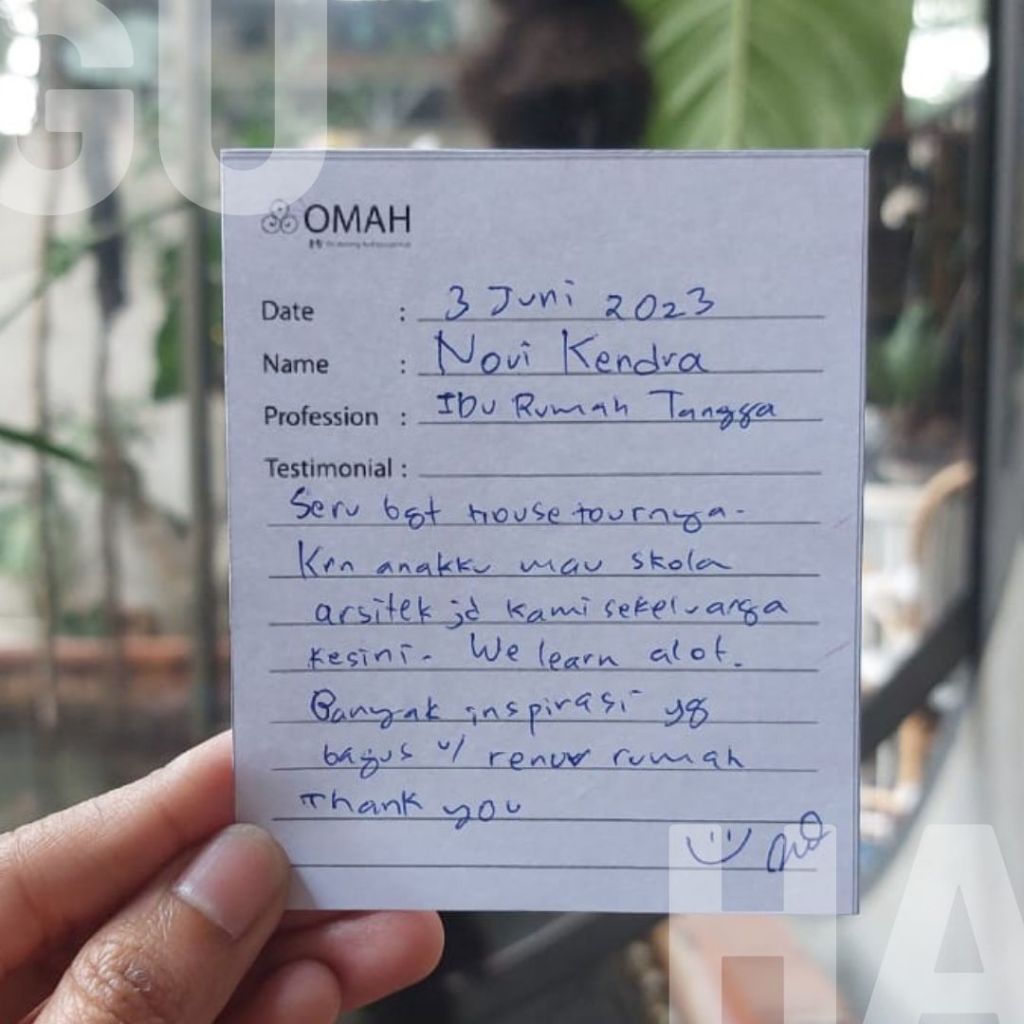 GU
OMAH
Date : 3 Juni 2023
Name : Novi Kendra
Profession : Ibu Rumah Tangga
Testimonial :
Seru bgt house tournya.
Krn anakku mau skola
arsitek jd kami sekeluarga
kesini. We learn alot.
Banyak inspirasi yg
bagus u/ renov rumah
Thank you
HA